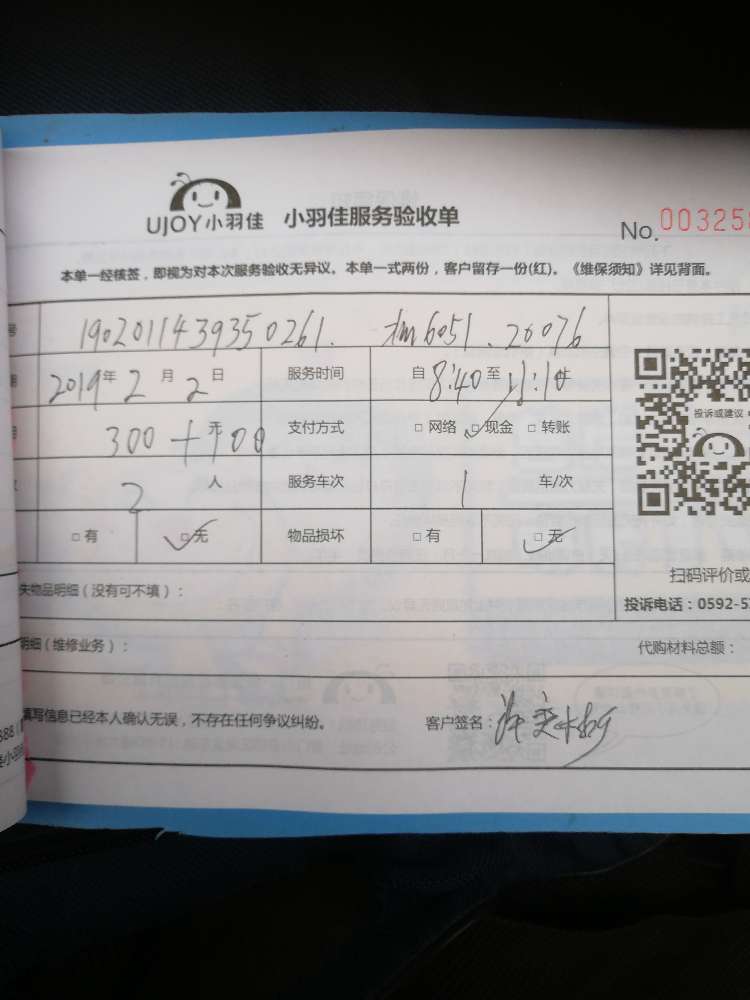 UJOY小羽佳 小羽佳服务验收单 No.00325
本单一经核签，即视为对本次服务验收无异议。本单一式两份，客户留存一份(红)。《维保须知》详见背面。
号 1902011439350261. 6051.26076
2019年2月2日 服务时间 自8:40至11:10
300+100 元 支付方式 □网络 □现金 □转账
2人 服务车次 1 车/次
□有 □无 物品损坏 □有 □无
投诉或建议
扫码评价或
失物品明细（没有可不填）：
投诉电话：0592-5
明细（维修业务）： 代购材料总额：
填写信息已经本人确认无误，不存在任何争议纠纷。 客户签名：